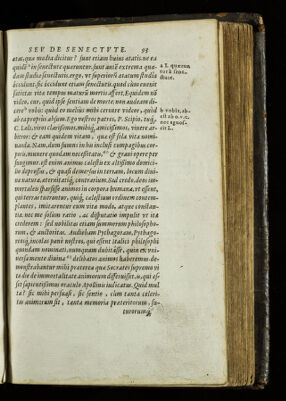 SEV DE SENECTVTE. 95
ætas, quæ media dicitur? sunt etiam huius ætatis. ne ea
quidē in senectute quæruntur. sunt autē extrema quæ-
dam studia senectutis. ergo, ut superiorū ætatum studia
occidunt, sic occidunt etiam senectutis. quod cùm euenit
satietas vitæ tempus maturū mortis affert. Equidem nō
video, cur, quid ipse sentiam de morte, non audeam di-
cere vobis: quòd eo melius mihi cernere videor, quòd
ab ea propius absum. Ego vestros patres, P. Scipio, tuq́;
C. Læli, viros clarissimos, mihiq́; amicissimos, viuere ar-
bitror: & eam quidem vitam, quæ est sola vita nomi-
nanda. Nam, dum sumus in his inclusi compagibus cor-
poris, munere quodam necessitatis, & graui opere per
fungimur. est enim animus cælestis ex altissimo domici-
lio depressus, & quasi demersus in terram, locum diui-
næ naturæ, æternitatíq́; contrarium. Sed credo deos im-
mortales sparsisse animos in corpora humana, vt essent,
qui terras tuerentur, quiq́; cælestium ordinem contem-
plantes, imitarentur eum vitæ modo, atque constan-
tia. nec me solùm ratio, ac disputatio impulit vt ita
crederem: sed nobilitas etiam summorum philosopho-
rum, & auctoritas. Audiebam Pythagoram, Pythago-
reosq́; incolas penè nostros, qui essent italici philosophi
quondam nominati, nunquam dubitasse, quin ex vni-
uersa mente diuina delibatos animos haberemus. de-
monstrabantur mihi præterea quæ Socrates supremo vi
tæ die de immortalitate animorum disseruisset, is, qui es-
set sapientissimus oraculo Apollinis iudicatus. Quid mul
ta? sic mihi persuasi, sic sentio, cùm tanta celeri-
tas animorum sit, tanta memoria præteritorum, fu-
turorumq́;
a L. quærun
tur in senec
tute.
b vobis, ab-
est ab o. v. c.
nec agnos-
cit L.